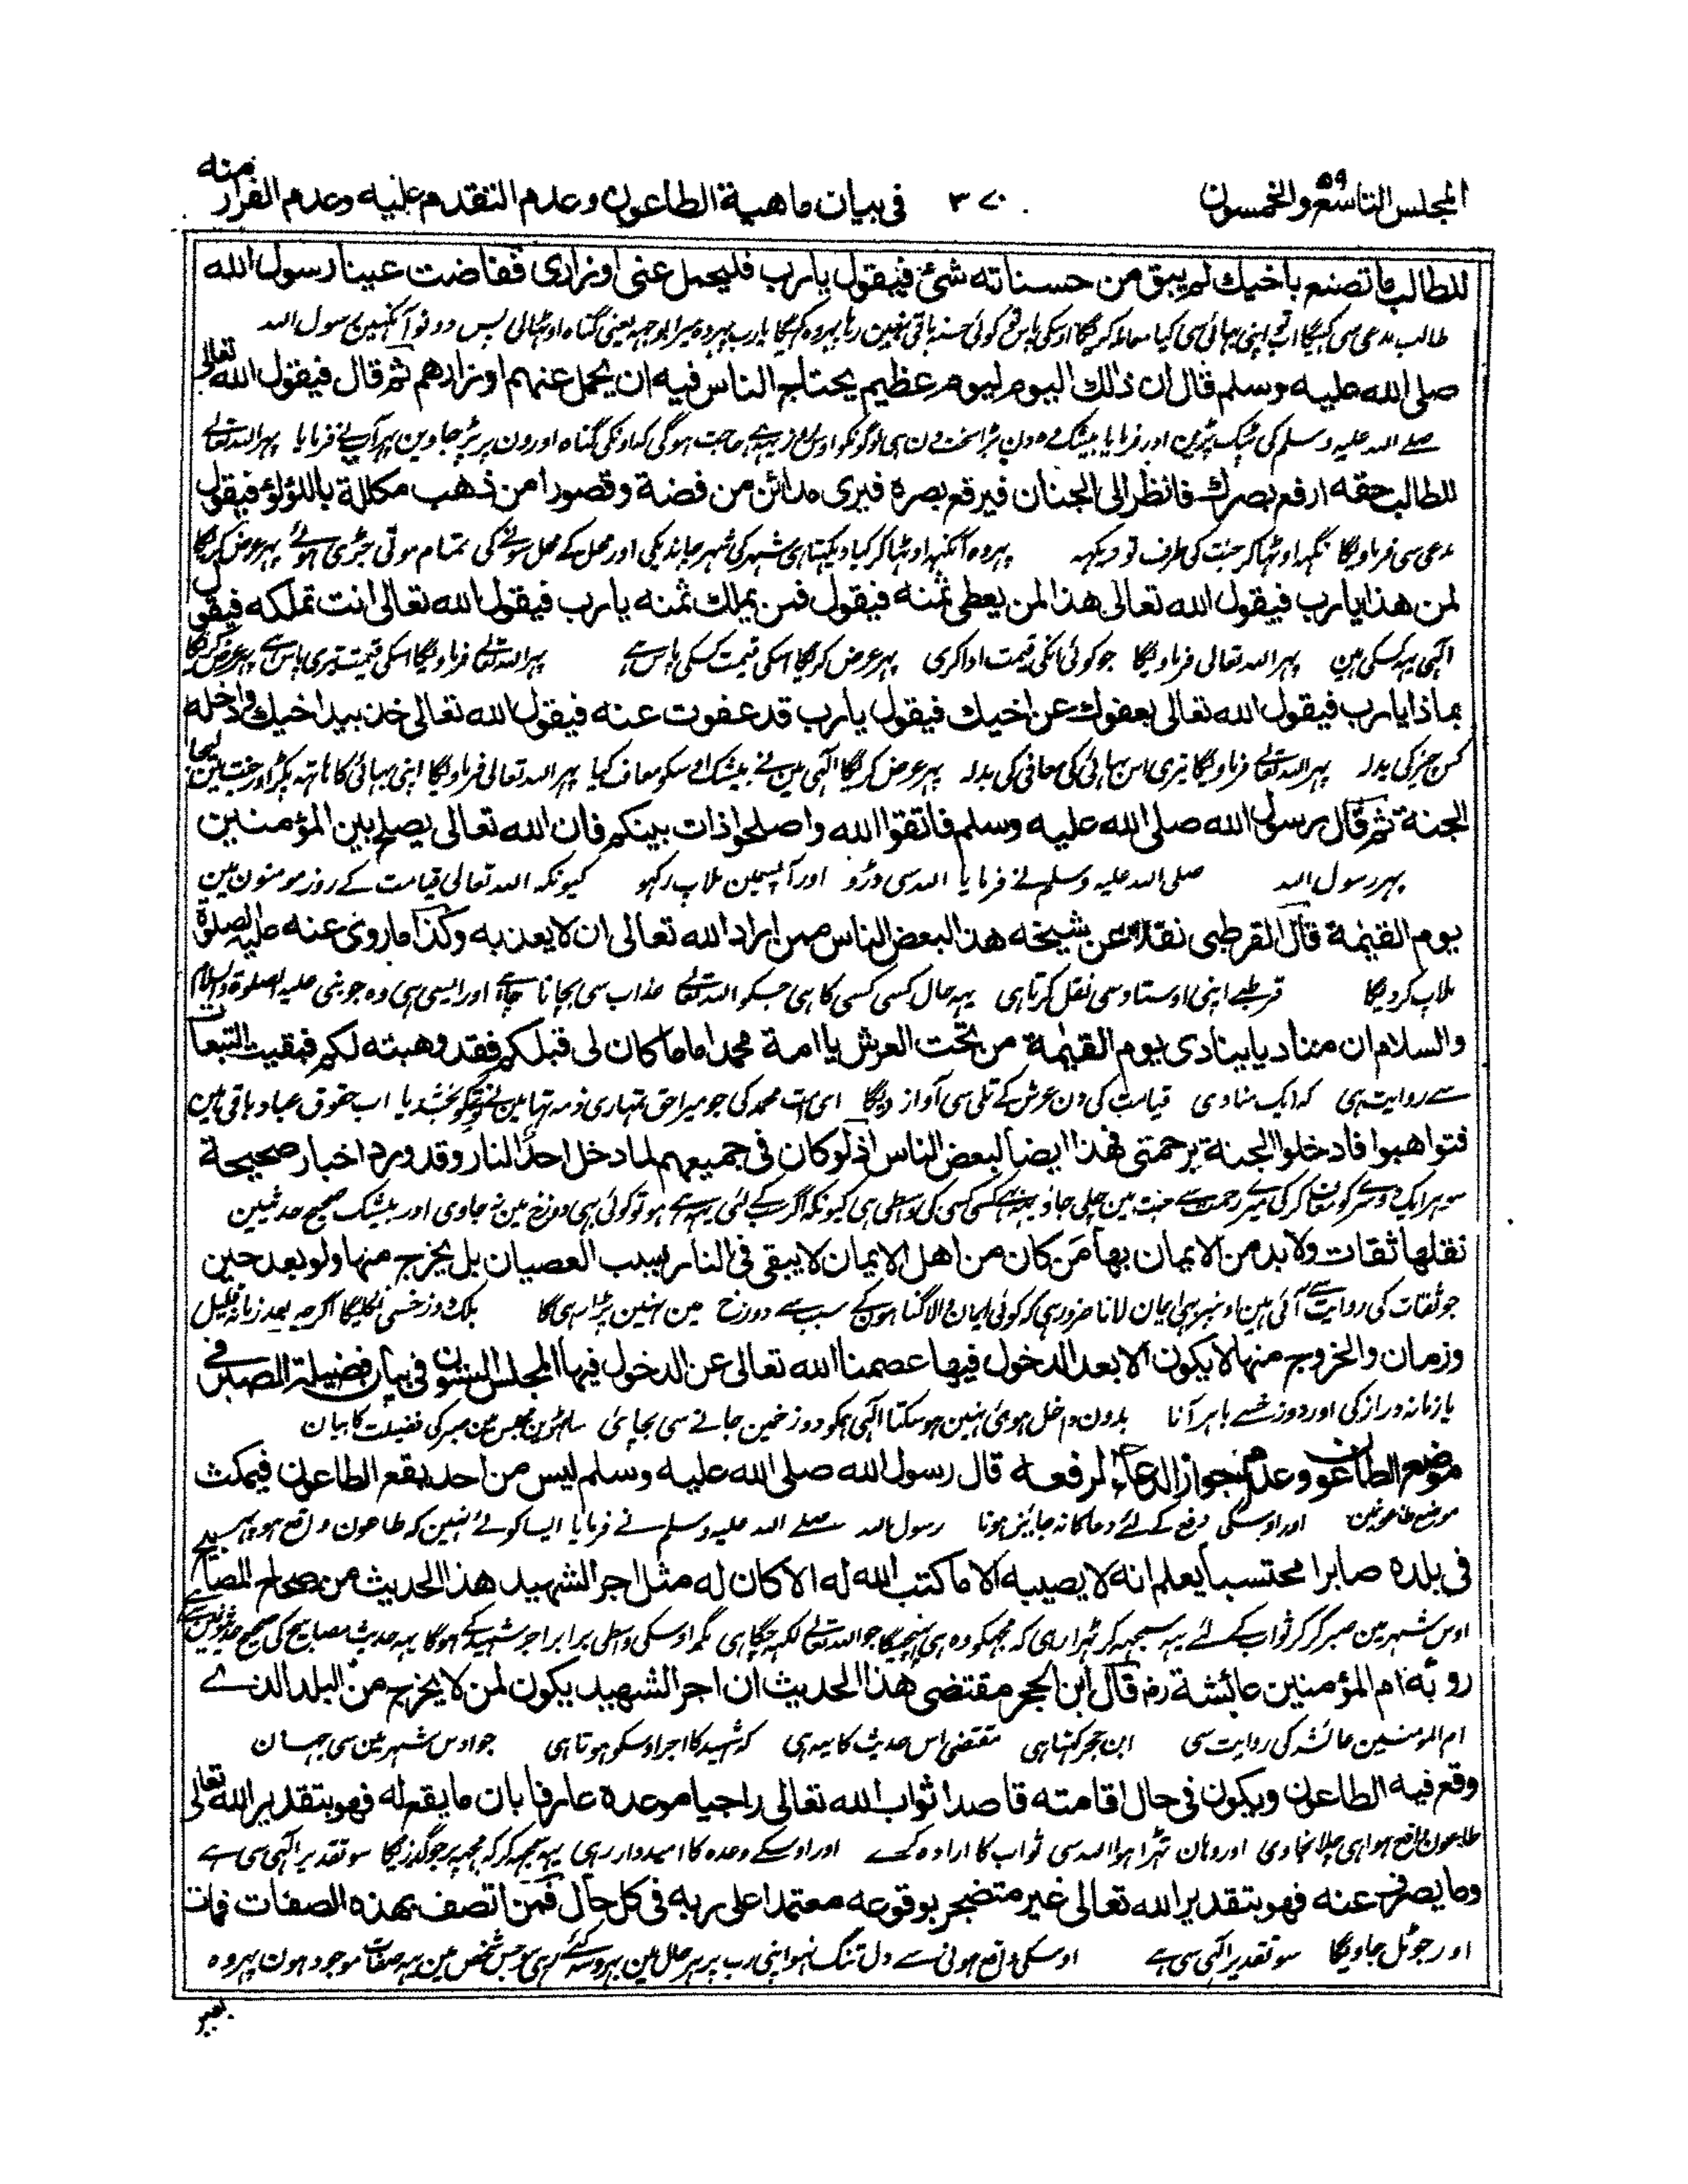 المجلس التاسع والخمسون ٥٩
٣٧٠
في بيان ماهية الطاعون وعدم التقدم عليه وعدم الفرار منه
للطالب ما تصنع باخيك لم يبق من حسناته شئ فيقول يا رب فليحمل عنى اوزارى ففاضت عينا رسول الله
طالب مدعی سی کہیگا اب تو اپنی بہائی سی کیا معاملہ کریگا اوسکی پاس تو کوئی حسنہ باقی نہین رہا پہر وہ کہیگا یارب پہر وہ میرا بوجہ یعنی گناہ اوٹہالی پس دونو آنکہین رسول اللہ
صلى الله عليه وسلم قال ان ذلك اليوم ليوم عظيم يحتاج الناس فيه ان يحمل عنهم اوزارهم ثم قال فيقول الله تعالى
صلے اللہ علیہ وسلم کی ٹپک پڑین اور فرمایا بیشک وہ دن بڑا سخت دن ہی لوگونکو اوس روز یہہ حاجت ہوگی کہ اونکی گناہ اورون پر پڑ جاوین پہر آپ نے فرمایا پہر اللہ تعالے
للطالب حقه ارفع بصرك فانظر الى الجنان فيرفع بصره فيرى مدائن من فضة وقصورا من ذهب مكللة باللؤلؤ فيقول
مدعی سی فرماویگا نگہہ اوٹہا کر جنت کی طرف تو دیکہہ پہر وہ آنکہہ اوٹہا کر کیا دیکہتا ہی شہر کی شہر چاندیکی اور محل کے محل سونے کی تمام موتی جڑی ہوئے پہر عرض کریگا
لمن هذا يا رب فيقول الله تعالى هذا لمن يعطى ثمنه فيقول فمن يملك ثمنه يا رب فيقول الله تعالى انت تملكه فيقول
الٰہی یہہ کسکی ہین پہر اللہ تعالی فرماویگا جو کوئی انکی قیمت ادا کری پہر عرض کریگا اسکی قیمت کسکی پاس ہے پہر اللہ تعالے فرماویگا اسکی قیمت تیری پاس ہے پہر عرض کریگا
بماذا يا رب فيقول الله تعالى بعفوك عن اخيك فيقول يا رب قد عفوت عنه فيقول الله تعالى خذ بيد اخيك وادخله
کس چیز کی بدلہ پہر اللہ تعالے فرماویگا تیری اس بہائی کی معافی کی بدلہ پہر عرض کریگا الٰہی مین نے بیشک اسکو معاف کیا پہر اللہ تعالی فرماویگا اپنی بہائی کا ہاتہہ پکڑ اور جنت مین لیجا
الجنة ثم قال رسول الله صلى الله عليه وسلم فاتقوا الله واصلحوا ذات بينكم فان الله تعالى يصلح بين المؤمنين
پہر رسول اللہ صلی اللہ علیہ وسلم نے فرمایا اللہ سی ڈرو اور آپسمین ملاپ رکہو کیونکہ اللہ تعالی قیامت کے روز مومنون مین
يوم القيمة قال القرطبى نقلا عن شيخه هذا لبعض الناس ممن اراد الله تعالى ان لا يعذبه وكذا ما روى عنه عليه الصلوة
ملاپ کردیگا قرطبے اپنی اوستاد سی نقل کرتا ہی یہہ حال کسی کسی کا ہی جسکو اللہ تعالے عذاب سی بچانا چاہے اور ایسی ہی وہ جو نبی علیہ الصلوۃ والسلام
والسلام ان مناديا ينادى يوم القيمة من تحت العرش يا امة محمد اما ما كان لى قبلكم فقد وهبته لكم فبقيت التبعات
سے روایت ہی کہ ایک منادی قیامت کی دن عرش کے تلی سی آواز دیگا ای امت محمد کی جو میرا حق تمہاری ذمہ تہا مین نے تمکو بخشدیا اب حقوق عباد باقی ہین
فتواهبوا فادخلوا الجنة برحمتى فهذا ايضا لبعض الناس اذ لو كان فى جميعهم لما دخل احد النار وقد ورد اخبار صحيحة
سو ہر ایک دوسرے کو معاف کر کی میری رحمت سے جنت مین چلی جاؤ یہہ بہی کسی کسی کی واسطی ہی کیونکہ اگر سب کے لئی یہہ ہو تو کوئی بہی دوزخ مین نہ جاوی اور بیشک صحیح حدیثین
نقلها ثقات ولا بد من الايمان بها من كان من اهل الايمان لا يبقى فى النار بسبب العصيان بل يخرج منها ولو بعد حين
جو ثقات کی روایت سے آئی ہین اونپر بہی ایمان لانا ضرور ہی کہ کوئی ایمان والا گناہون کے سبب سے دوزخ مین نہین پڑا رہی گا بلکہ دوزخ سی نکلیگا اگرچہ بعد زمانہ قلیل
وزمان والخروج منها لا يكون الا بعد الدخول فيها عصمنا الله تعالى عن الدخول فيها المجلس الستون فى بيان فضيلة الصبر فى
یا زمانہ دراز کی اور دوزخ سے باہر آنا بدون داخل ہوئی نہین ہوسکتا الٰہی ہمکو دوزخ مین جانے سی بچائی ساٹہوین مجلس مین صبر کی فضیلت کا بیان
موضع الطاعون وعدم جواز الدعاء لرفعه قال رسول الله صلى الله عليه وسلم ليس من احد يقع الطاعون فيمكث
موضع طاعون مین اور اوسکی رفع کے لئے دعا کا نہ جایز ہونا رسول اللہ صلے اللہ علیہ وسلم نے فرمایا ایسا کوئے نہین کہ طاعون واقع ہو پہر
فى بلده صابرا محتسبا يعلم انه لا يصيبه الا ما كتب الله له الا كان له مثل اجر الشهيد هذا الحديث من صحاح المصابيح
اوس شہر مین صبر کر کر ثواب کے لئے یہہ سمجہہ کر ٹہرا رہی کہ مجہکو وہ ہی پہنچیگا جو اللہ تعالے لکہہ چکا ہی مگر اوسکی واسطی برابر اجر شہید کے ہوگا یہہ حدیث مصابیح کی صحیح حدیثون مین سے
روته ام المؤمنين عائشة رض قال ابن الحجر مقتضى هذا الحديث ان اجر الشهيد يكون لمن لا يخرج من البلد الذے
ام المومنین عائشہ کی روایت سی ابن حجر کہتا ہی مقتضی اس حدیث کا یہہ ہی کہ شہید کا اجر اوسکو ہوتا ہی جو اوس شہر مین سی جہان
وقع فيه الطاعون ويكون فى حال اقامته قاصدا ثواب الله تعالى راجيا موعده عارفا بان ما يقع له فهو بتقدير الله تعالى
طاعون واقع ہوا ہی چلا نجاوی اور وہان ٹہرا ہوا اللہ سی ثواب کا ارادہ رکہے اور اوسکے وعدہ کا امیدوار رہی یہہ سمجہہ کر کہ مجہپر جو گذریگا سو تقدیر الٰہی سی ہے
وما يصرف عنه فهو بتقدير الله تعالى غير متضجر بوقوعه معتمدا على ربه فى كل حال فمن اتصف بهذه الصفات فمات
اور جو ٹل جاویگا سو تقدیر الٰہی سی ہے اوسکی واقع ہونی سے دل تنگ نہو اپنی رب پر ہر حال مین بہروسہ کئے رہی سو جس شخص مین یہہ صفات موجود ہون پہر وہ
بغير